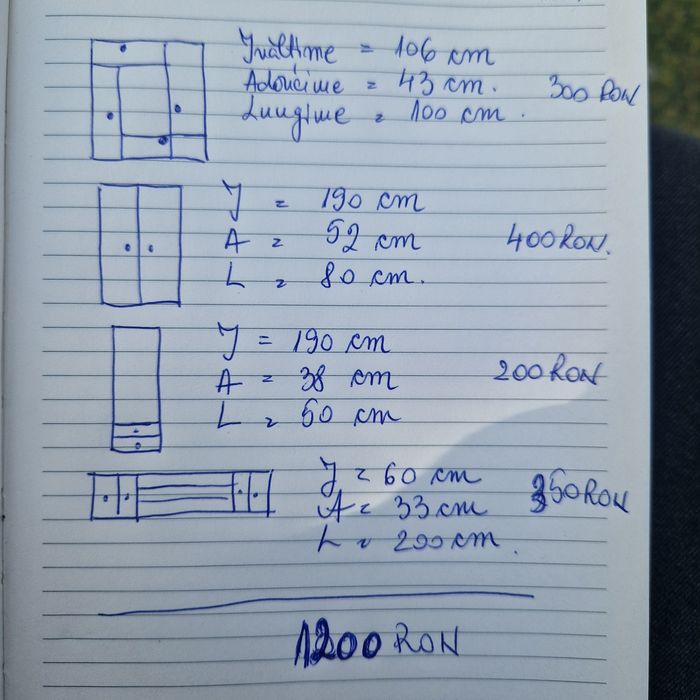 Înălțime = 106 cm
Adâncime = 43 cm. 300 RON
Lungime = 100 cm.
Î = 190 cm
A = 52 cm 400 RON.
L = 80 cm.
Î = 190 cm
A = 38 cm 200 RON
L = 50 cm
Î = 60 cm
A = 33 cm 350 RON
L = 200 cm.
1200 RON